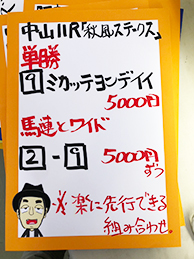 中山11R「秋風ステークス」
単勝
9 ミカッテヨンデイイ
5000円
馬連とワイド
2-9 5000円
ずつ
※楽に先行できる
組み合わせ。